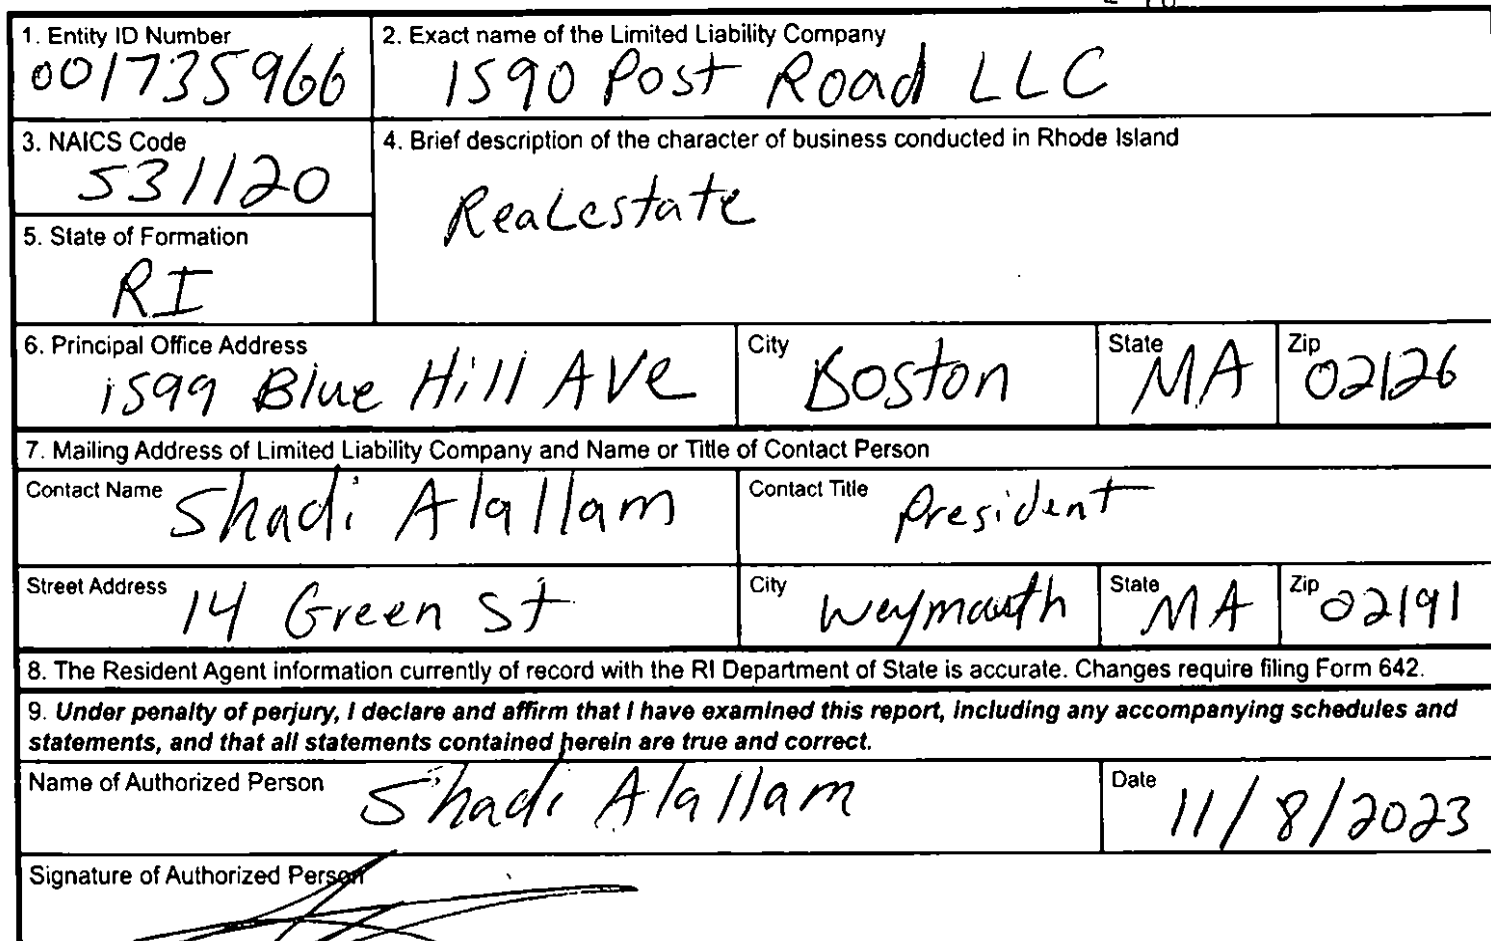 1. Entity ID Number
001735966
2. Exact name of the Limited Liability Company
1590 Post Road LLC
3. NAICS Code
531120
4. Brief description of the character of business conducted in Rhode Island
Realestate
5. State of Formation
RI
6. Principal Office Address
1599 Blue Hill AVe
City
Boston
State
MA
Zip
02126
7. Mailing Address of Limited Liability Company and Name or Title of Contact Person
Contact Name
Shadi Alallam
Contact Title
President
Street Address
14 Green St
City
Weymouth
State
MA
Zip
02191
8. The Resident Agent information currently of record with the RI Department of State is accurate. Changes require filing Form 642.
9. Under penalty of perjury, I declare and affirm that I have examined this report, including any accompanying schedules and
statements, and that all statements contained herein are true and correct.
Name of Authorized Person
Shadi Alallam
Date
11/8/2023
Signature of Authorized Person